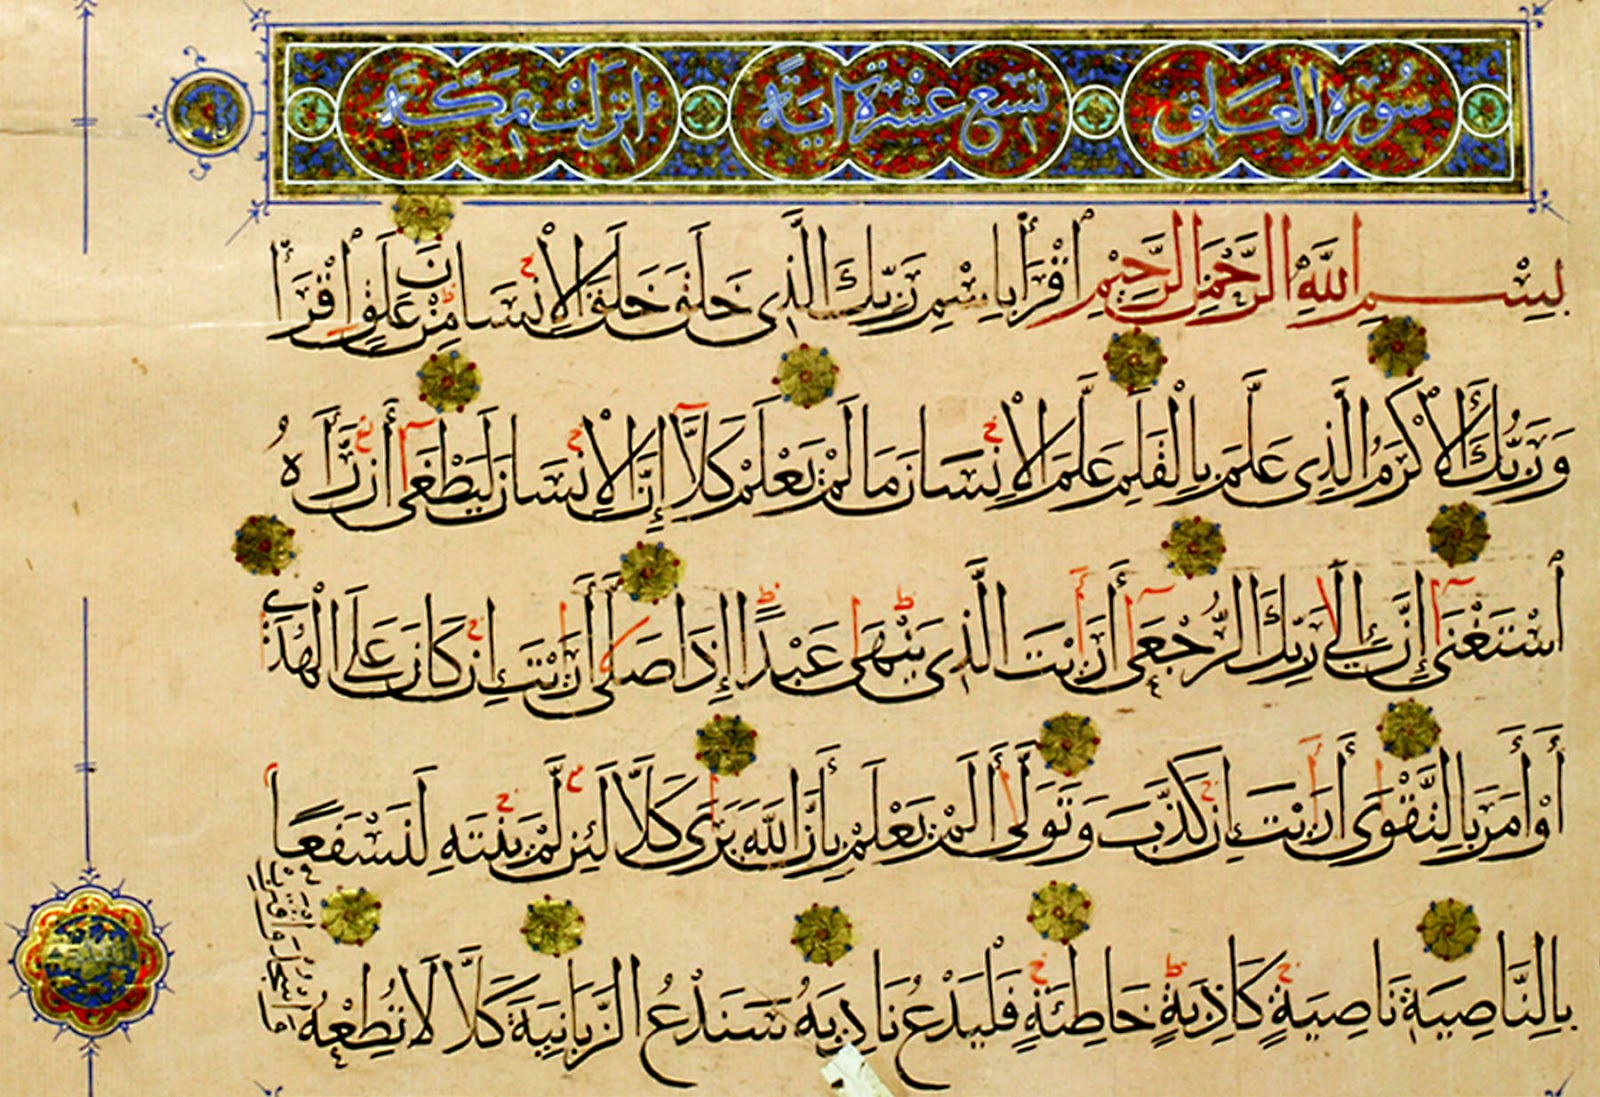 سورة العلق تسع عشرة آية أنزلت بمكة
بِسْمِ اللَّهِ الرَّحْمَٰنِ الرَّحِيمِ اقْرَأْ بِاسْمِ رَبِّكَ الَّذِي خَلَقَ خَلَقَ الْإِنسَانَ مِنْ عَلَقٍ اقْرَأْ
وَرَبُّكَ الْأَكْرَمُ الَّذِي عَلَّمَ بِالْقَلَمِ عَلَّمَ الْإِنسَانَ مَا لَمْ يَعْلَمْ كَلَّا إِنَّ الْإِنسَانَ لَيَطْغَى أَن رَّآهُ
اسْتَغْنَى إِنَّ إِلَى رَبِّكَ الرُّجْعَى أَرَأَيْتَ الَّذِي يَنْهَى عَبْدًا إِذَا صَلَّى أَرَأَيْتَ إِن كَانَ عَلَى الْهُدَى
أَوْ أَمَرَ بِالتَّقْوَى أَرَأَيْتَ إِن كَذَّبَ وَتَوَلَّى أَلَمْ يَعْلَم بِأَنَّ اللَّهَ يَرَى كَلَّا لَئِن لَّمْ يَنتَهِ لَنَسْفَعًا
بِالنَّاصِيَةِ نَاصِيَةٍ كَاذِبَةٍ خَاطِئَةٍ فَلْيَدْعُ نَادِيَهُ سَنَدْعُ الزَّبَانِيَةَ كَلَّا لَا تُطِعْهُ
وَاسْجُدْ وَاقْتَرِبْ